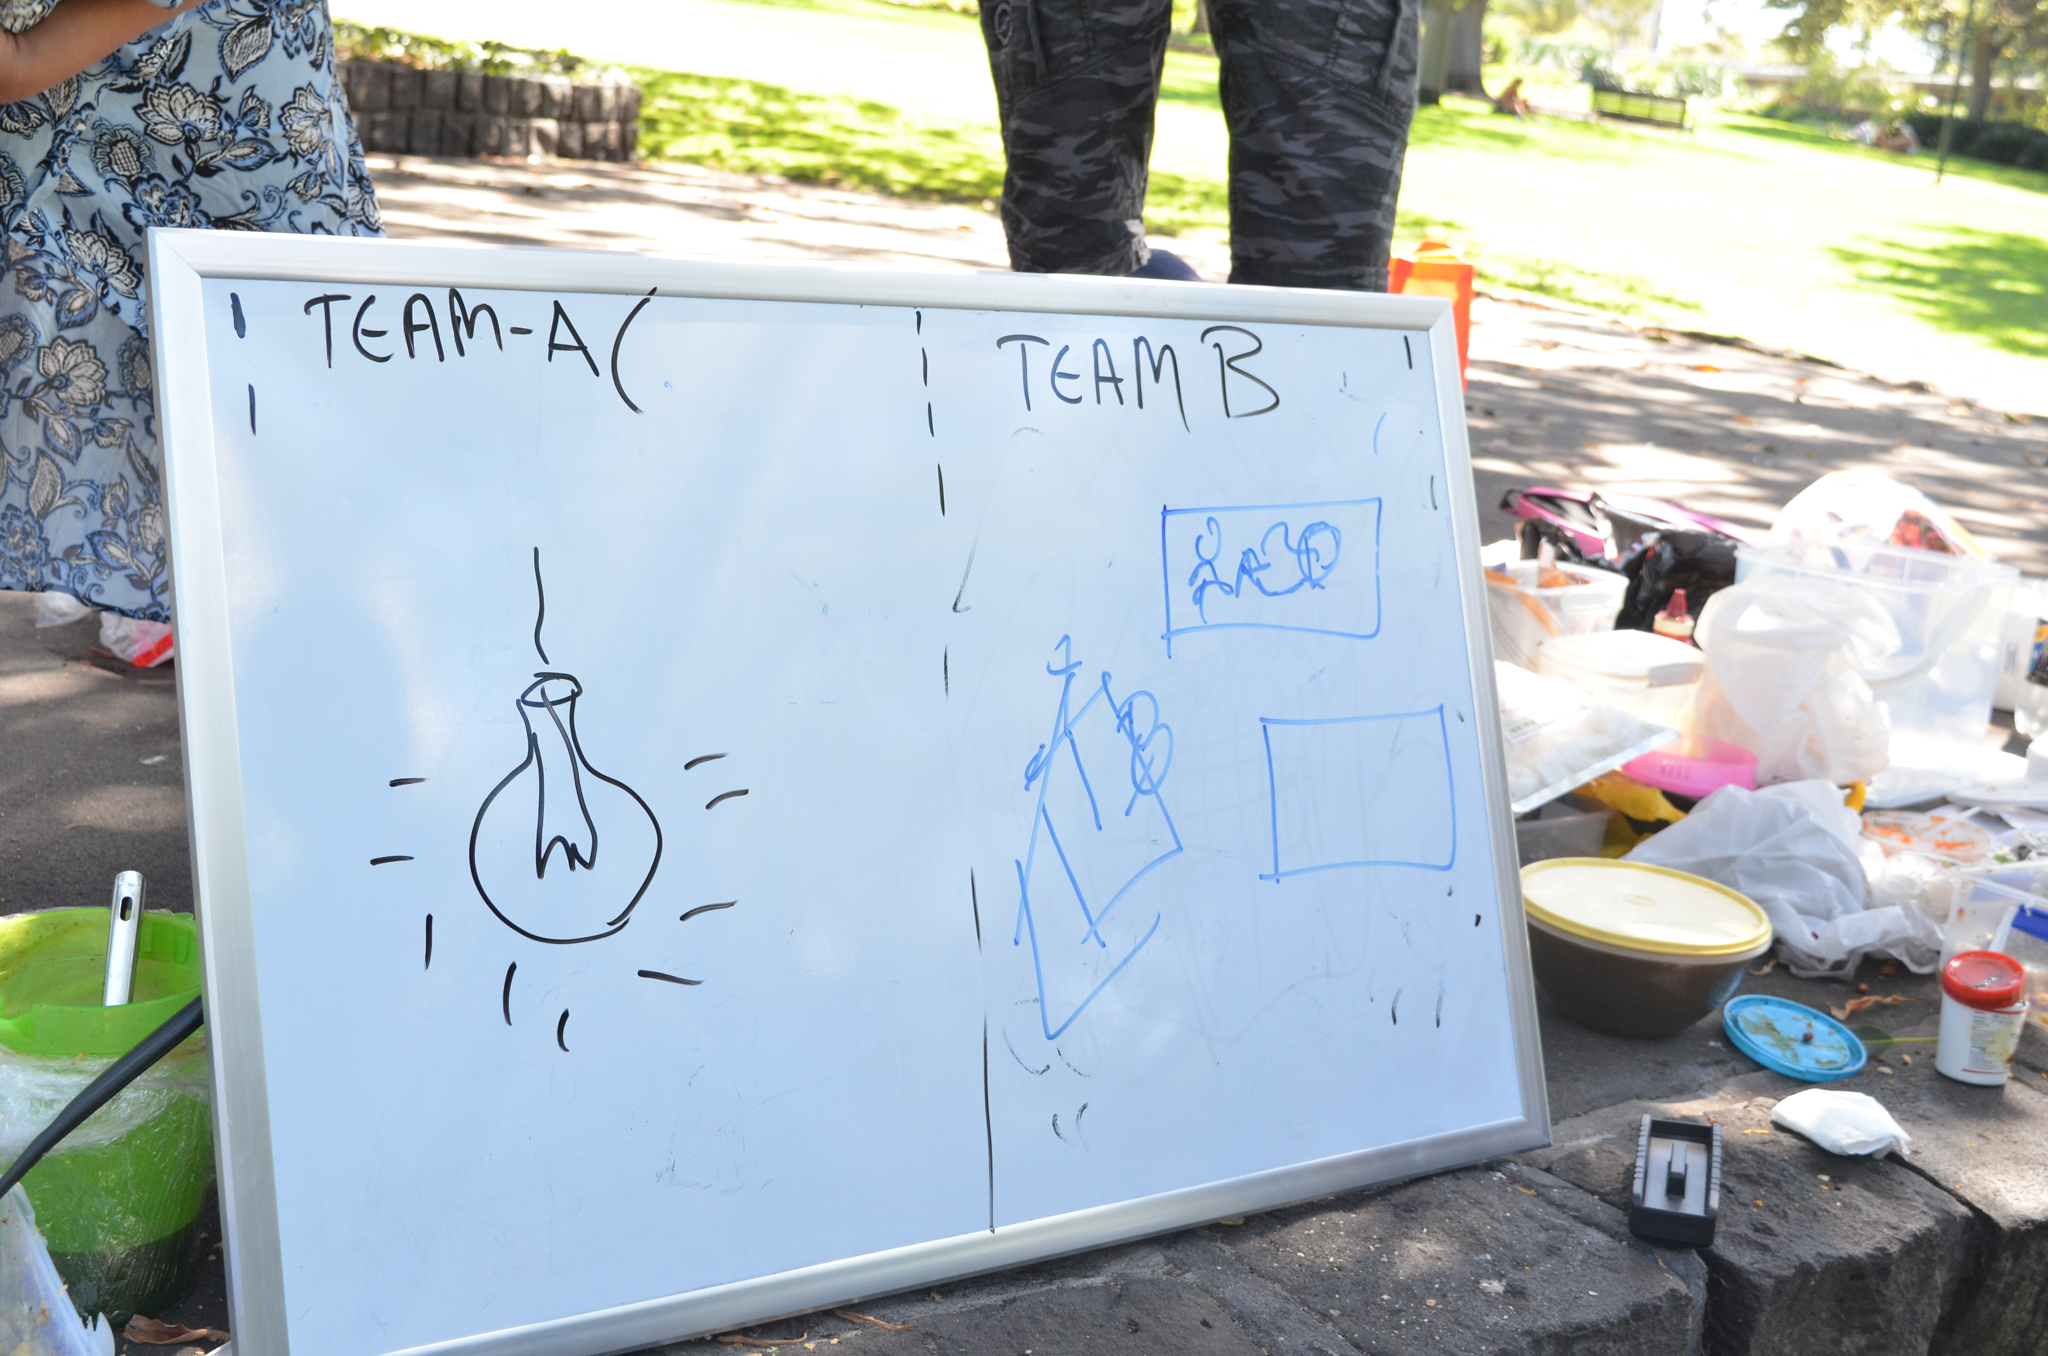 TEAM-A (
TEAM B